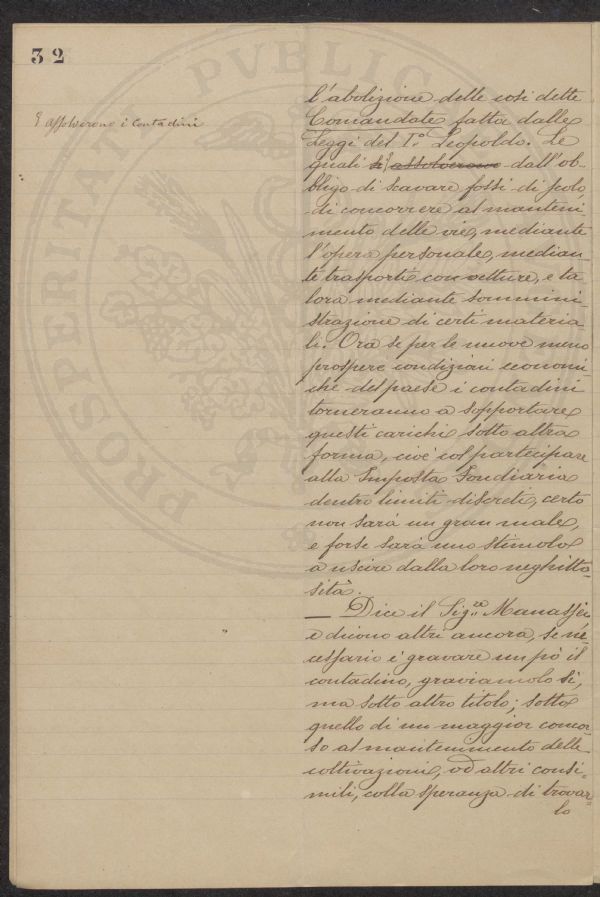 32
§ assolverono i contadini
l'abolizione delle cosi dette
Comandate fatta dalle
Leggi del I.º Leopoldo. Le
quali § assolverono dall'ob-
bligo di scavare fossi di scolo,
di concorrere al manteni
mento delle vie, mediante
l'opera personale, median-
te trasporti con vetture, e ta
lora mediante sommini-
strazione di certi materia-
li. Ora se per le nuove meno
prospere condizioni economi-
che del paese i contadini
torneranno a sopportare
questi carichi sotto altra
forma, cioè col partecipare
alla Imposta Fondiaria
dentro limiti discreti, certo
non sarà un gran male,
e forse sarà uno stimolo
a uscire dalla loro neghitto-
sità.
— Dice il Sig.re Manassei
e dicono altri ancora, se ne-
cessario è gravare un pò il
contadino, graviamolo sì,
ma sotto altro titolo; sotto
quello di un maggior concor-
so al mantenimento delle
coltivazioni, od altri consi-
mili, colla speranza di trovar-
lo
PROSPERITAT PVBLIC